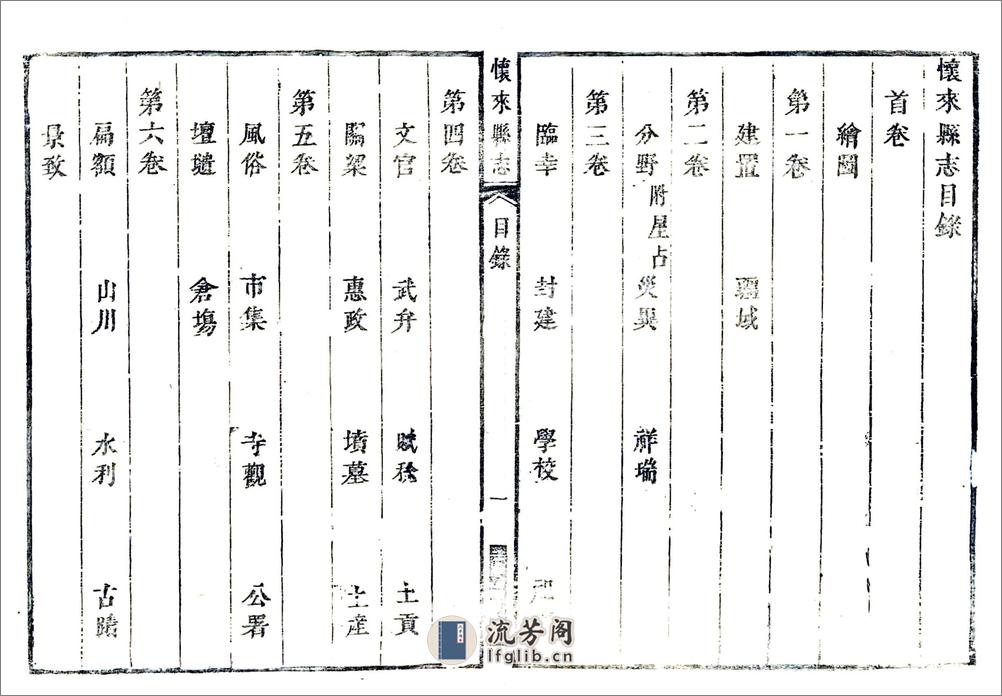 懷來縣志目錄
首卷
繪圖
第一卷
建置 疆域
第二卷
分野 附星占 災異 祥瑞
第三卷
臨幸 封建 學校
懷來縣志 目錄 一
第四卷
文官 武弁 賦稅 土貢
關梁 惠政 墳墓 土產
第五卷
風俗 市集 寺觀 公署
壇壝 倉場
第六卷
扁額 山川 水利 古蹟
景致
流芳阁
lfglib.cn